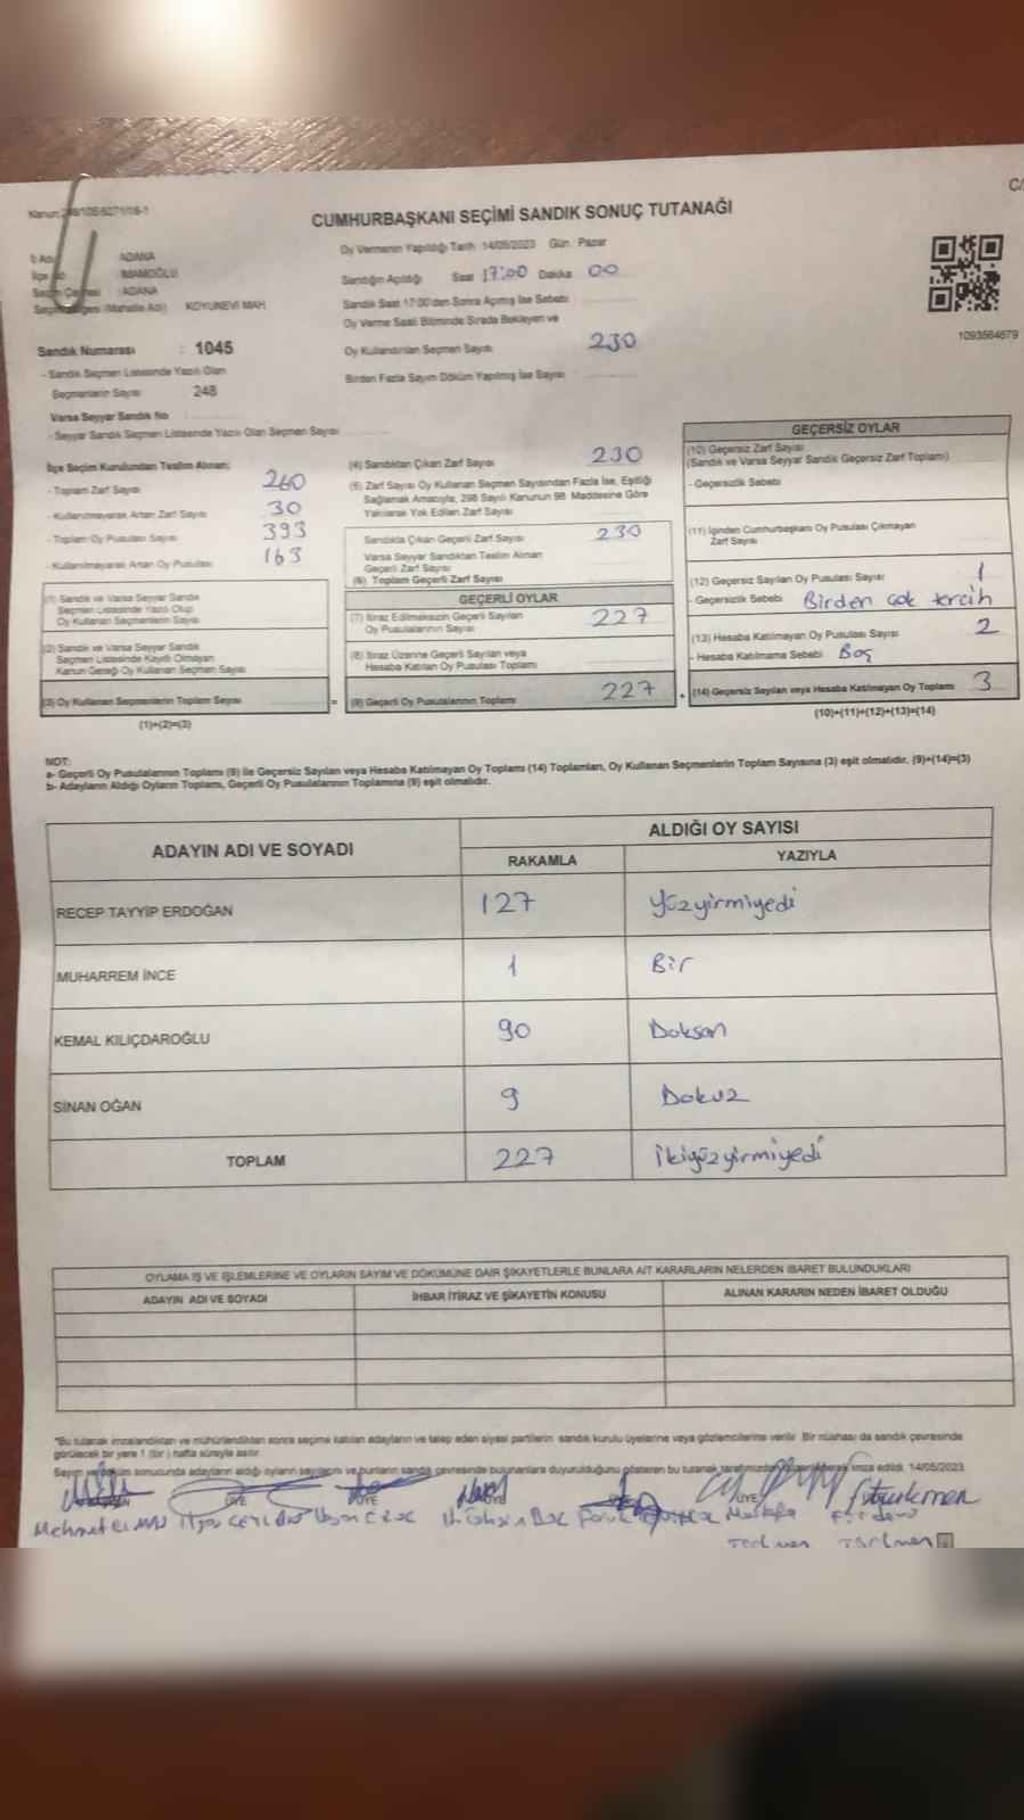 CUMHURBAŞKANI SEÇİMİ SANDIK SONUÇ TUTANAĞI
Oy Vermenin Yapıldığı Tarih 14/05/2023 Gün: Pazar
ADANA
İMAMOĞLU
ADANA
KOYUNEVİ MAH
Sandığın Açıldığı Saat 17:00 Dakika 00
Sandık Saat 17:00'den Sonra Açılmış İse Sebebi
Oy Verme Saati Bitiminde Sırada Bekleyen ve
Oy Kullandırılan Seçmen Sayısı 230
Birden Fazla Sayım Döküm Yapılmış İse Sayısı
1093564679
Sandık Numarası : 1045
- Sandık Seçmen Listesinde Yazılı Olan
Seçmenlerin Sayısı 248
Varsa Seyyar Sandık No
- Seyyar Sandık Seçmen Listesinde Yazılı Olan Seçmen Sayısı
İlçe Seçim Kurulundan Teslim Alınan;
- Toplam Zarf Sayısı 260
- Kullanılmayarak Artan Zarf Sayısı 30
- Toplam Oy Pusulası Sayısı 393
- Kullanılmayarak Artan Oy Pusulası 163
(1) Sandık ve Varsa Seyyar Sandık
Seçmen Listesinde Yazılı Olup
Oy Kullanan Seçmenlerin Sayısı
(2) Sandık ve Varsa Seyyar Sandık
Seçmen Listesinde Kayıtlı Olmayan
Kanun Gereği Oy Kullanan Seçmen Sayısı
(3) Oy Kullanan Seçmenlerin Toplam Sayısı
(1)+(2)=(3)
(4) Sandıktan Çıkan Zarf Sayısı 230
(5) Zarf Sayısı Oy Kullanan Seçmen Sayısından Fazla İse, Eşitliği
Sağlamak Amacıyla, 298 Sayılı Kanunun 98. Maddesine Göre
Yakılarak Yok Edilen Zarf Sayısı
Sandıkta Çıkan Geçerli Zarf Sayısı 230
Varsa Seyyar Sandıktan Teslim Alınan
Geçerli Zarf Sayısı
(6) Toplam Geçerli Zarf Sayısı
GEÇERLİ OYLAR
(7) İtiraz Edilmeksizin Geçerli Sayılan
Oy Pusulalarının Sayısı 227
(8) İtiraz Üzerine Geçerli Sayılan veya
Hesaba Katılan Oy Pusulası Toplamı
(9) Geçerli Oy Pusulalarının Toplamı 227
GEÇERSİZ OYLAR
(10) Geçersiz Zarf Sayısı
(Sandık ve Varsa Seyyar Sandık Geçersiz Zarf Toplamı)
- Geçersizlik Sebebi
(11) İçinden Cumhurbaşkanı Oy Pusulası Çıkmayan
Zarf Sayısı
(12) Geçersiz Sayılan Oy Pusulası Sayısı 1
- Geçersizlik Sebebi Birden çok tercih
(13) Hesaba Katılmayan Oy Pusulası Sayısı 2
- Hesaba Katılmama Sebebi Boş
(14) Geçersiz Sayılan veya Hesaba Katılmayan Oy Toplamı 3
(10)+(11)+(12)+(13)=(14)
NOT:
a- Geçerli Oy Pusulalarının Toplamı (9) ile Geçersiz Sayılan veya Hesaba Katılmayan Oy Toplamı (14) Toplamları, Oy Kullanan Seçmenlerin Toplam Sayısına (3) eşit olmalıdır. (9)+(14)=(3)
b- Adayların Aldığı Oyların Toplamı, Geçerli Oy Pusulalarının Toplamına (9) eşit olmalıdır.
ADAYIN ADI VE SOYADI
ALDIĞI OY SAYISI
RAKAMLA YAZIYLA
RECEP TAYYİP ERDOĞAN 127 yüzyirmiyedi
MUHARREM İNCE 1 Bir
KEMAL KILIÇDAROĞLU 90 Doksan
SİNAN OĞAN 9 Dokuz
TOPLAM 227 ikiyüzyirmiyedi
OYLAMA İŞ VE İŞLEMLERİNE VE OYLARIN SAYIM VE DÖKÜMÜNE DAİR ŞİKAYETLERLE BUNLARA AİT KARARLARIN NELERDEN İBARET BULUNDUKLARI
ADAYIN ADI VE SOYADI İHBAR İTİRAZ VE ŞİKAYETİN KONUSU ALINAN KARARIN NEDEN İBARET OLDUĞU
"Bu tutanak imzalandıktan ve mühürlendikten sonra seçime katılan adayların ve talep eden siyasi partilerin sandık kurulu üyelerine veya gözlemcilerine verilir. Bir nüshası da sandık çevresinde
görülecek bir yere 1 (bir) hafta süreyle asılır.